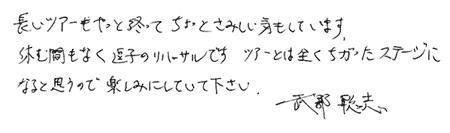 長いツアーもやっと終って ちょっとさみしい気もしています。
休む間もなく逗子のリハーサルです ツアーとは全くちがったステージに
なると思うので楽しみにしていて下さい.
武部聡志